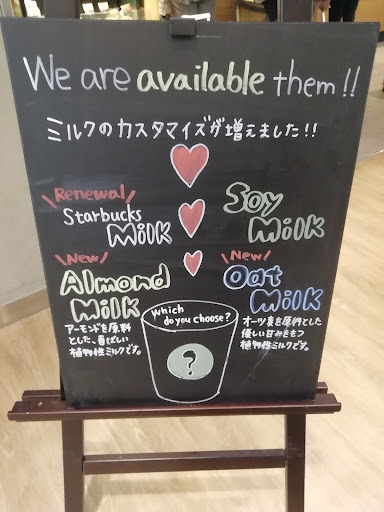 We are available them!!
ミルクのカスタマイズが増えました!!
Renewal
Starbucks
Milk
Soy
Milk
New
Almond
Milk
アーモンドを原料
とした、香ばしい
植物性ミルクです。
New
Oat
Milk
オーツ麦を原料とした
優しい甘みをもつ
植物性ミルクです。
Which
do you choose?
?